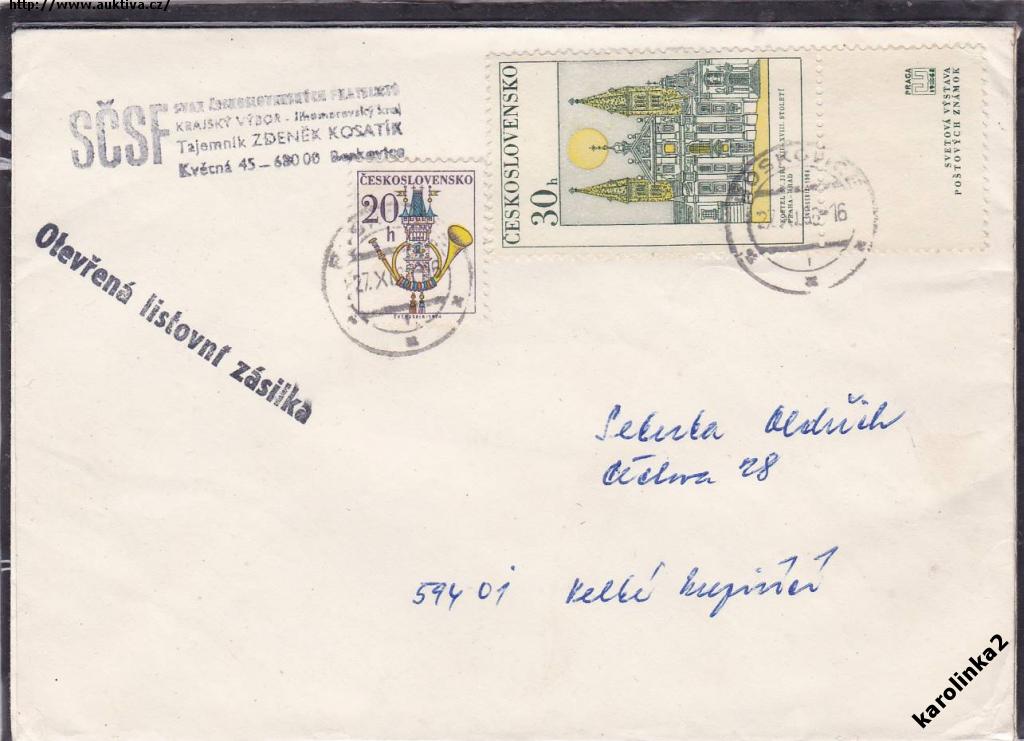 http://www.auktiva.cz/
SČSF
SVAZ ČESKOSLOVENSKÝCH FILATELISTŮ
KRAJSKÝ VÝBOR - Jihomoravský kraj
Tajemník ZDENĚK KOSATÍK
Květná 45 - 680 00 Boskovice
ČESKOSLOVENSKO
20
h
27.X
ČESKOSLOVENSKO
30 h
KOSTEL SV. JIŘÍ
PRAHA - HRAD
XVIII STOLETÍ
BOSKOVICE
16
PRAGA
1968
SVĚTOVÁ VÝSTAVA
POŠTOVNÍCH ZNÁMOK
Otevřená listovní zásilka
Oldřich
28
594 01 Velké Meziříčí
karolinka2